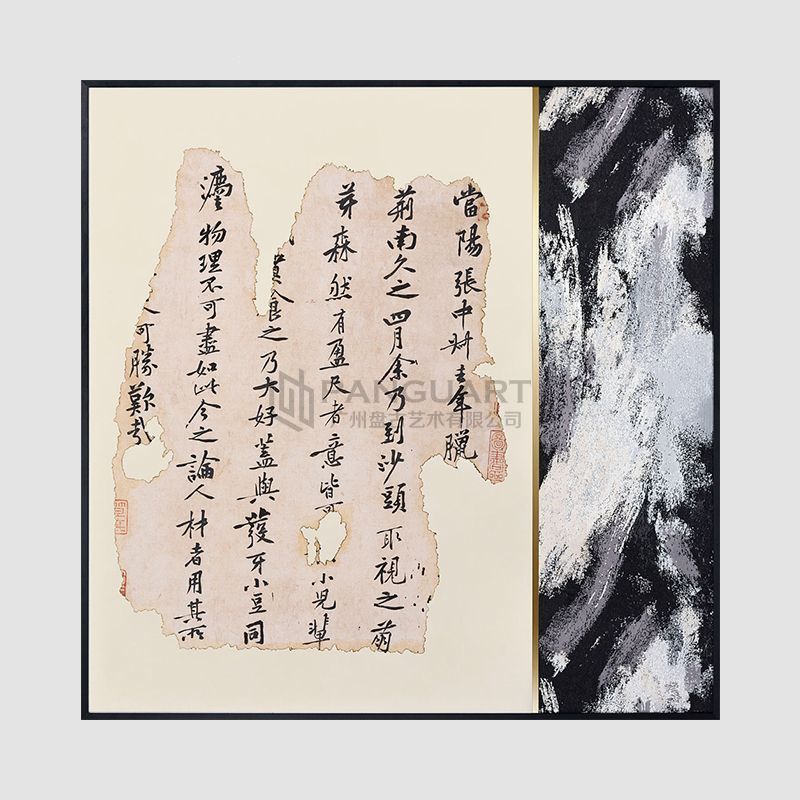 當陽張中叔去年臘
荊南久之四月余乃到沙頭取視之萌
芽森然有盈尺者意皆可小兒輩
食之乃大好蓋與發牙小豆同
灋物理不可盡如此今之論人材者用其所
人可勝歎哉
PANGUART
州盘古艺术有限公司